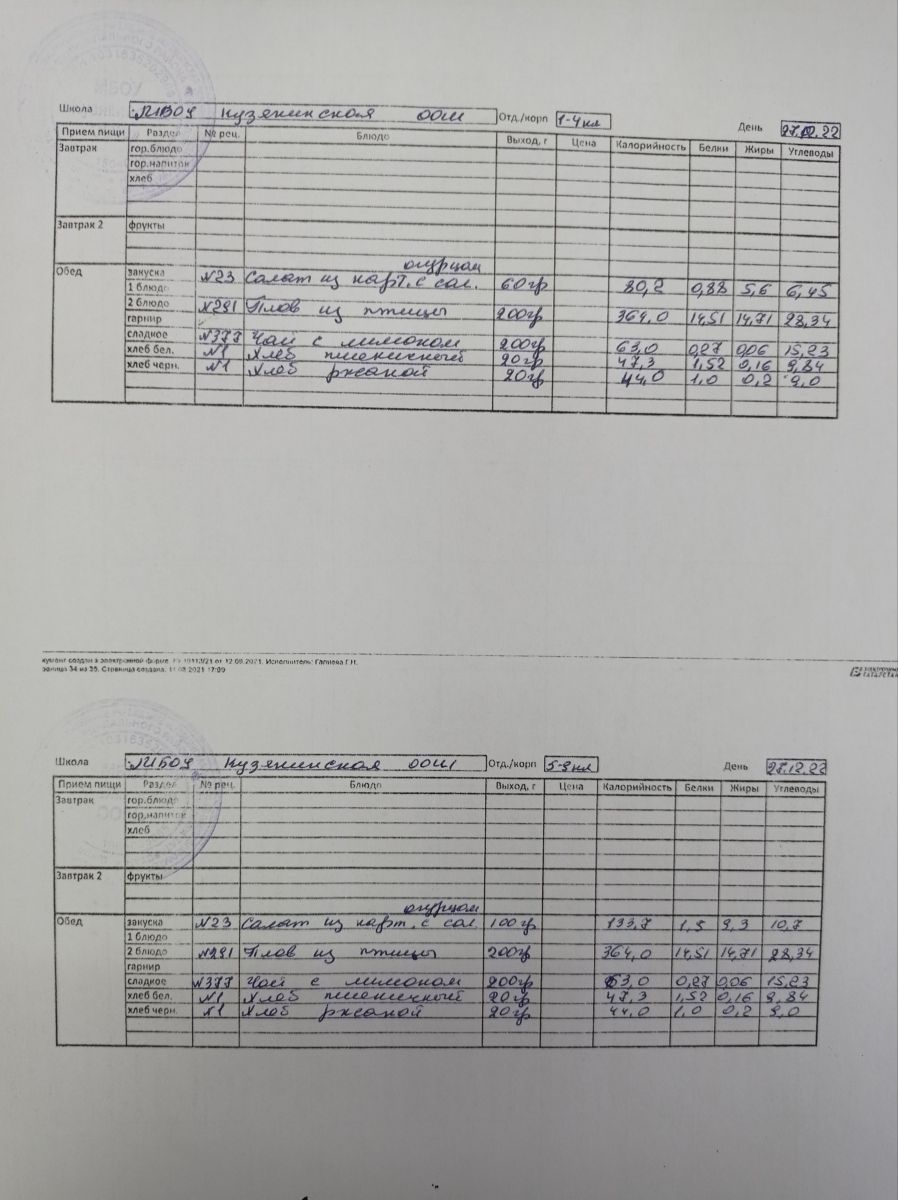 Школа МБОУ Кузякинская ООШ Отд./корп 1-4 кл День 27.12.22
Прием пищи Раздел № рец. Блюдо Выход, г Цена Калорийность Белки Жиры Углеводы
Завтрак гор.блюдо
гор.напиток
хлеб
Завтрак 2 фрукты
огурцом
Обед закуска №23 Салат из карт. с сол. 60гр 80,2 0,88 5,6 6,45
1 блюдо
2 блюдо №291 Плов из птицы 200гр 364,0 14,51 14,71 28,34
гарнир
сладкое №377 Чай с лимоном 200гр 63,0 0,27 0,06 15,23
хлеб бел. №1 Хлеб пшеничный 20гр 47,3 1,52 0,16 9,84
хлеб черн. №1 Хлеб ржаной 20гр 44,0 1,0 0,2 9,0
кумент создан в электронной форме. от 12.08.2021. Исполнитель: Галиева Г.Н.
раница 34 из 35. Страница создана: 11.08.2021 17:09
ЭЛЕКТРОННЫЙ
ТАТАРСТАН
Школа МБОУ Кузякинская ООШ Отд./корп 5-9 кл День 27.12.22
Прием пищи Раздел № рец. Блюдо Выход, г Цена Калорийность Белки Жиры Углеводы
Завтрак гор.блюдо
гор.напиток
хлеб
Завтрак 2 фрукты
огурцом
Обед закуска №23 Салат из карт. с сол. 100гр 133,7 1,5 9,3 10,7
1 блюдо
2 блюдо №291 Плов из птицы 200гр 364,0 14,51 14,71 28,34
гарнир
сладкое №377 Чай с лимоном 200гр 63,0 0,27 0,06 15,23
хлеб бел. №1 Хлеб пшеничный 20гр 47,3 1,52 0,16 9,84
хлеб черн. №1 Хлеб ржаной 20гр 44,0 1,0 0,2 9,0